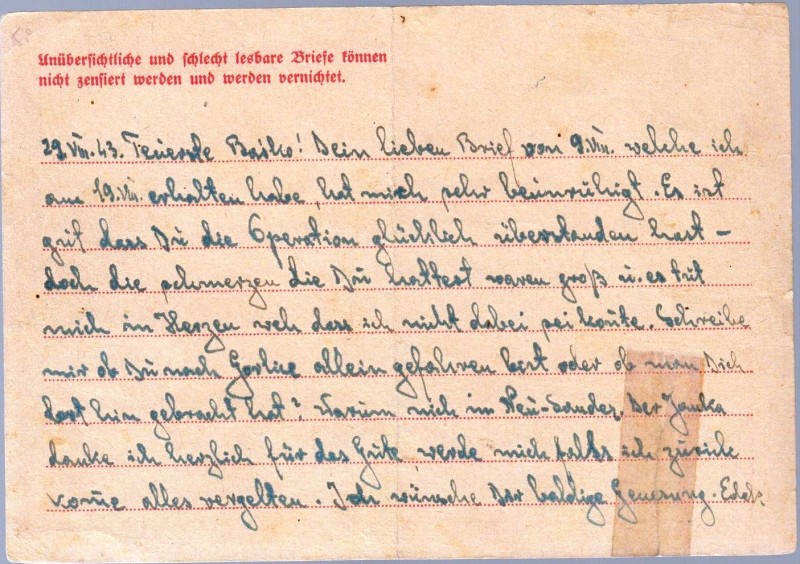 Unübersichtliche und schlecht lesbare Briefe können
nicht zensiert werden und werden vernichtet.
29.VIII.43. Teuerste Baśko! Dein lieben Brief von 9.VIII. welche ich
am 19.VIII. erhalten habe, hat mich sehr beunruhigt. Es ist
gut dass Du die Operation glücklich überstanden hast –
doch die schmerzen die Du hattest waren groß u. es tut
mich im Herzen weh dass ich nicht dabei sei koñte. Schreibe
mir ob Du nach Gorlice allein gefahren bist oder ob man Dich
dort hin gebracht hat? Warum nich im Neu-Sandez. Der Janka
danke ich herzlich für das Gute, werde mich falls ich zurück
kom̃e alles vergelten. Ich wünsche Dir baldige Genesung.